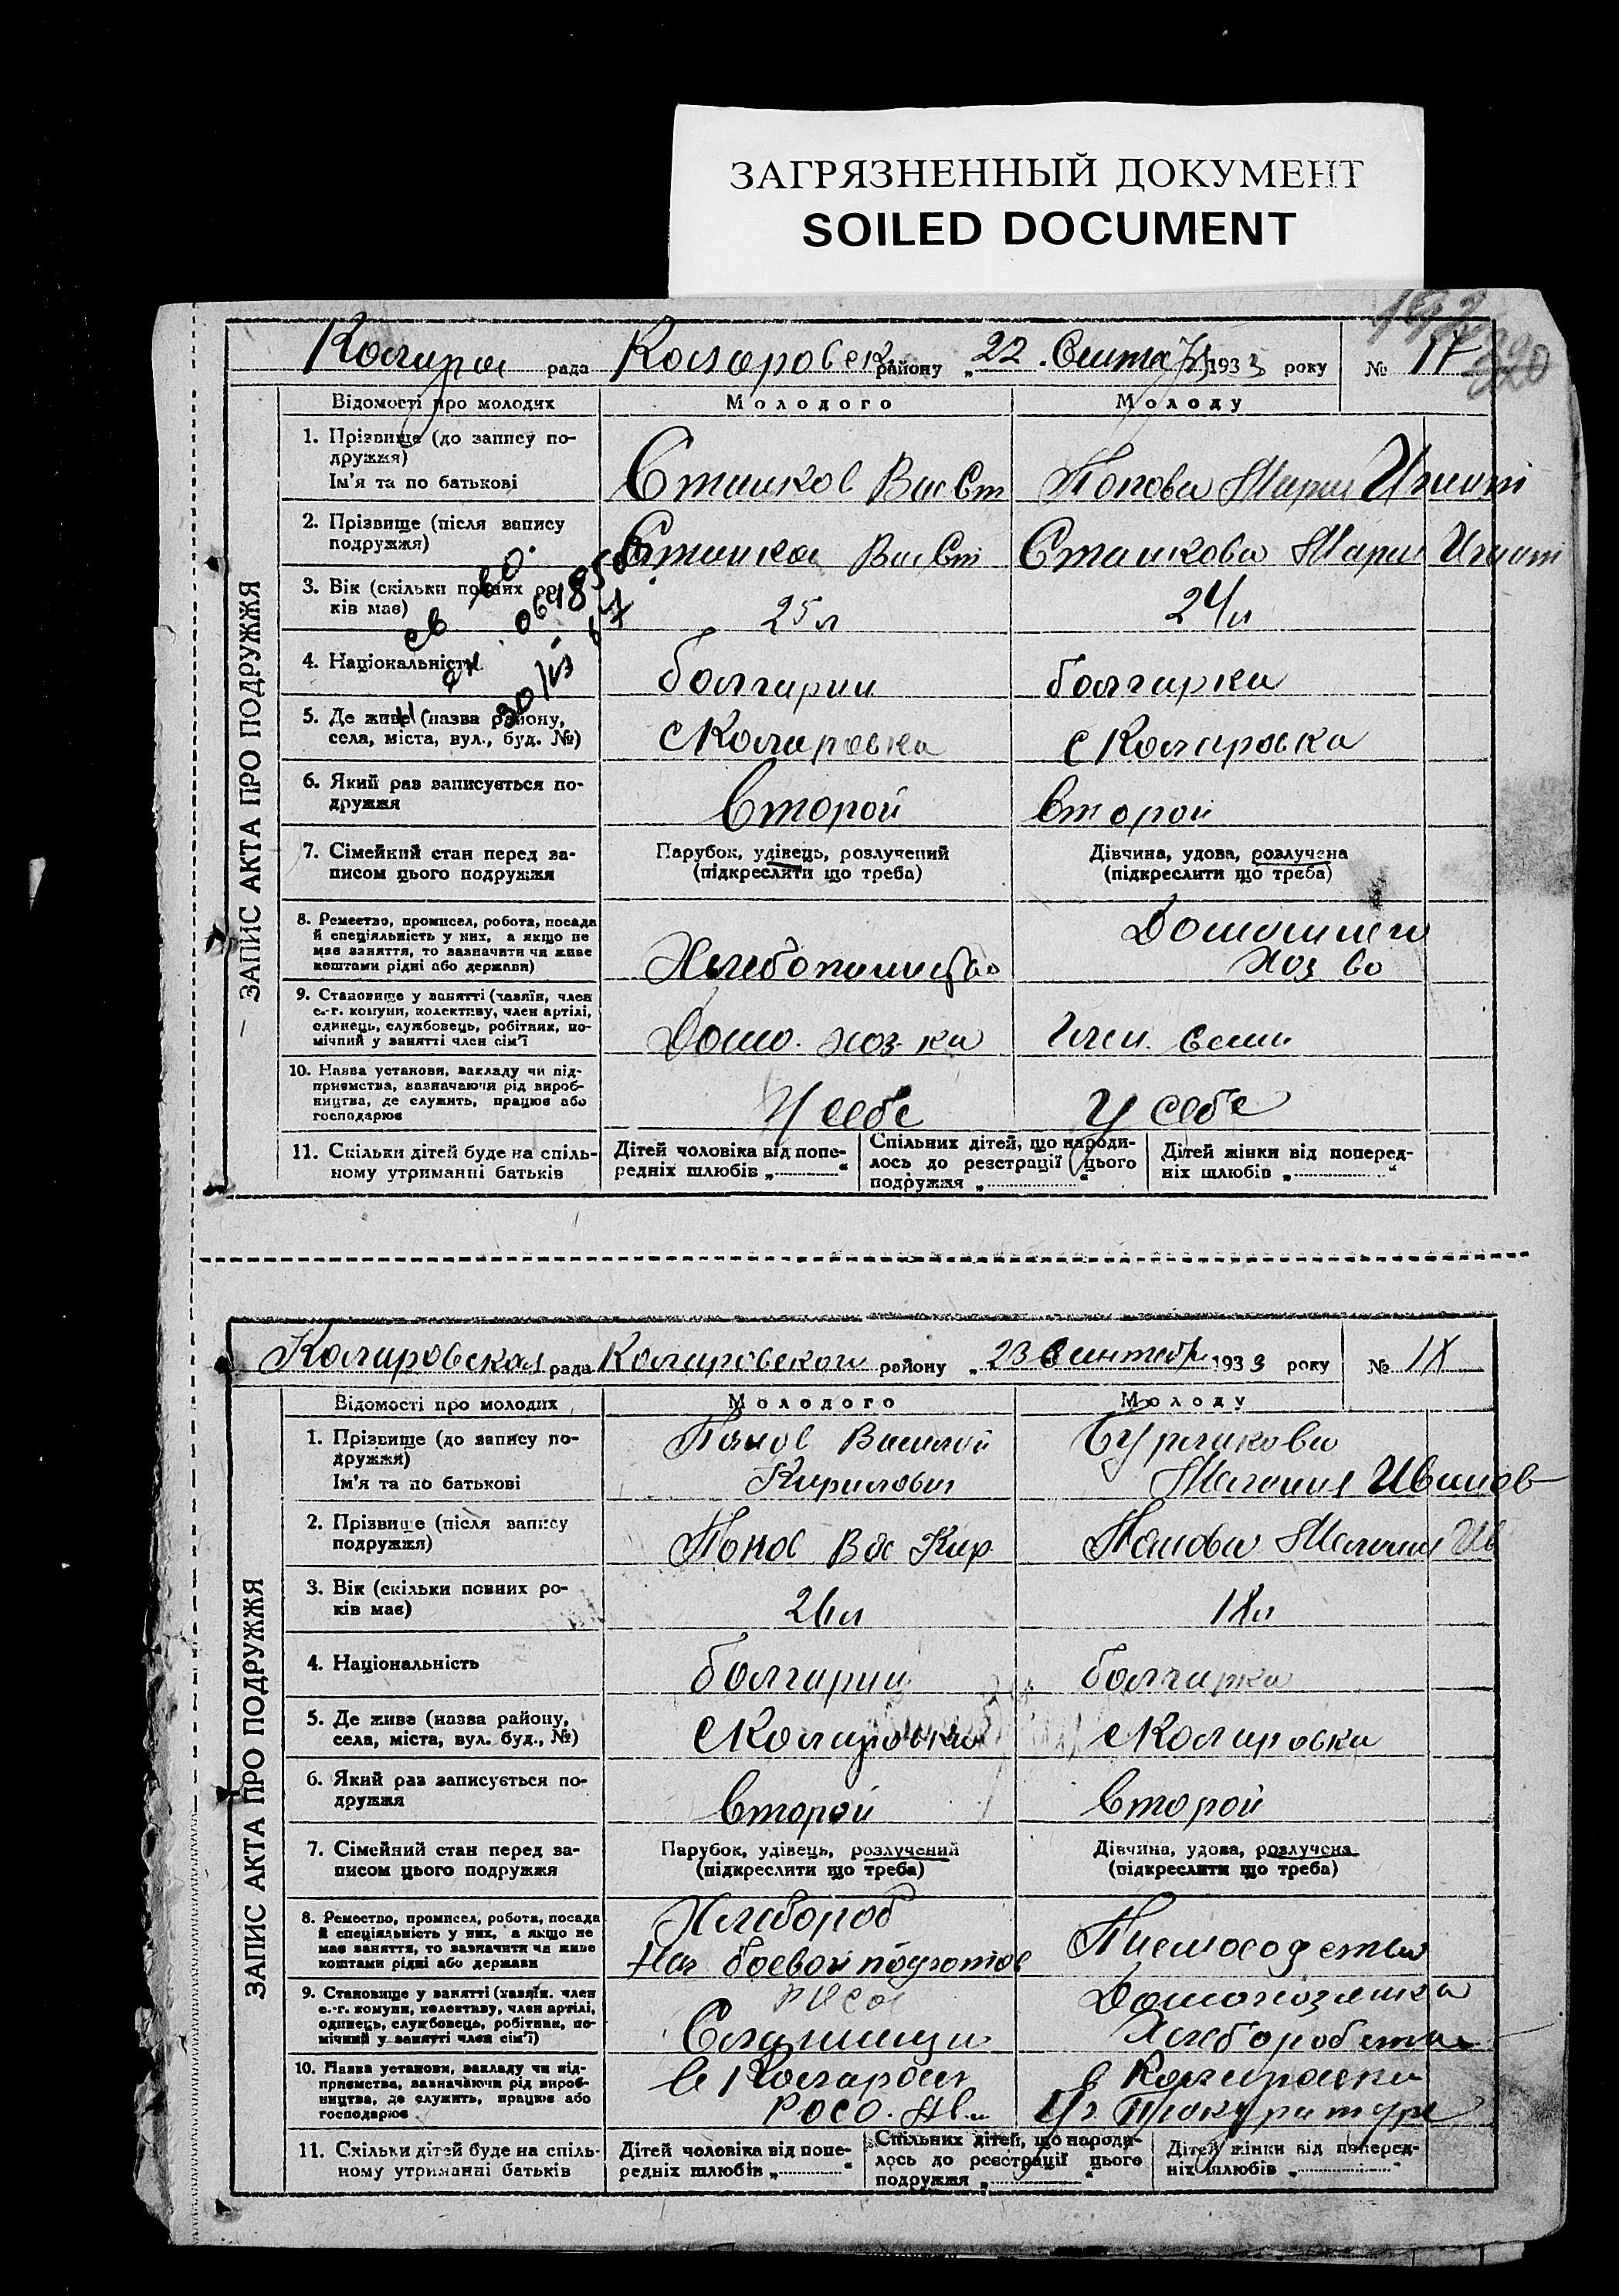 ЗАГРЯЗНЕННЫЙ ДОКУМЕНТ
SOILED DOCUMENT
рада Коларовск району „22 1933 року № 17
Відомості про молодих Молодого Молоду
ЗАПИС АКТА ПРО ПОДРУЖЖЯ
1. Прізвище (до запису по-
дружжя)
Ім'я та по батькові
Станков Вас Ст Попова Мария Игнат
2. Прізвище (після запису
подружжя)
Вас Ст Станкова Мария Игнат
3. Вік (скільки повних ро-
ків має)
25 л 24 л
4. Національність
болгарин болгарка
5. Де живе (назва району,
села, міста, вул., буд. №)
с Коларовка с Коларовка
6. Який раз записується по-
дружжя
второй второй
7. Сімейний стан перед за-
писом цього подружжя
Парубок, удівець, розлучений
(підкреслити що треба)
Дівчина, удова, розлучена
(підкреслити що треба)
8. Ремество, промисел, робота, посада
й спеціяльність у них, а якщо не
має заняття, то зазначити чи живе
коштами рідні або держави)
Домашнего
Хоз во
9. Становище у занятті (хазяїн, член
с.-г. комуни, колективу, член артілі,
одинець, службовець, робітник, по-
мічний у занятті член сім'ї
Дом. хоз-ка член семи
10. Назва установи, закладу чи під-
приємства, зазначаючи рід вироб-
ництва, де служить, працює або
господарює
У себе У себе
11. Скільки дітей буде на спіль-
ному утриманні батьків
Дітей чоловіка від попе-
редніх шлюбів „ “
Спільних дітей, що народи-
лось до реєстрації цього
подружжя „ “
Дітей жінки від поперед-
ніх шлюбів „ “
Коларовская рада Коларовского району „23 Сентябр 1933 року № 18
Відомості про молодих Молодого Молоду
ЗАПИС АКТА ПРО ПОДРУЖЖЯ
1. Прізвище (до запису по-
дружжя)
Ім'я та по батькові
Василий
Кирилович
Бурлакова
Мелания Иванов
2. Прізвище (після запису
подружжя)
Вас Кир Мелания Ив
3. Вік (скільки повних ро-
ків має)
26 л 18 л
4. Національність
болгарин болгарка
5. Де живе (назва району,
села, міста, вул. буд., №)
с Коларовка с Коларовка
6. Який раз записується по-
дружжя
второй второй
7. Сімейний стан перед за-
писом цього подружжя
Парубок, удівець, розлучений
(підкреслити що треба)
Дівчина, удова, розлучена
(підкреслити що треба)
8. Ремество, промисел, робота, посада
й спеціяльність у них, а якщо не
має заняття, то зазначити чи живе
коштами рідні або держави
Хлебороб
Нач боевой подготов
9. Становище у занятті (хазяїн, член
с.-г. комуни, колективу, член артілі,
одинець, службовець, робітник, по-
мічний у занятті член сім'ї)
10. Назва установи, закладу чи під-
приємства, зазначаючи рід вироб-
ництва, де служить, працює або
господарює
в
11. Скільки дітей буде на спіль-
ному утриманні батьків
Дітей чоловіка від попе-
редніх шлюбів „ “
Спільних дітей, що народи-
лось до реєстрації цього
подружжя „ “
Дітей жінки від поперед-
ніх шлюбів „ “